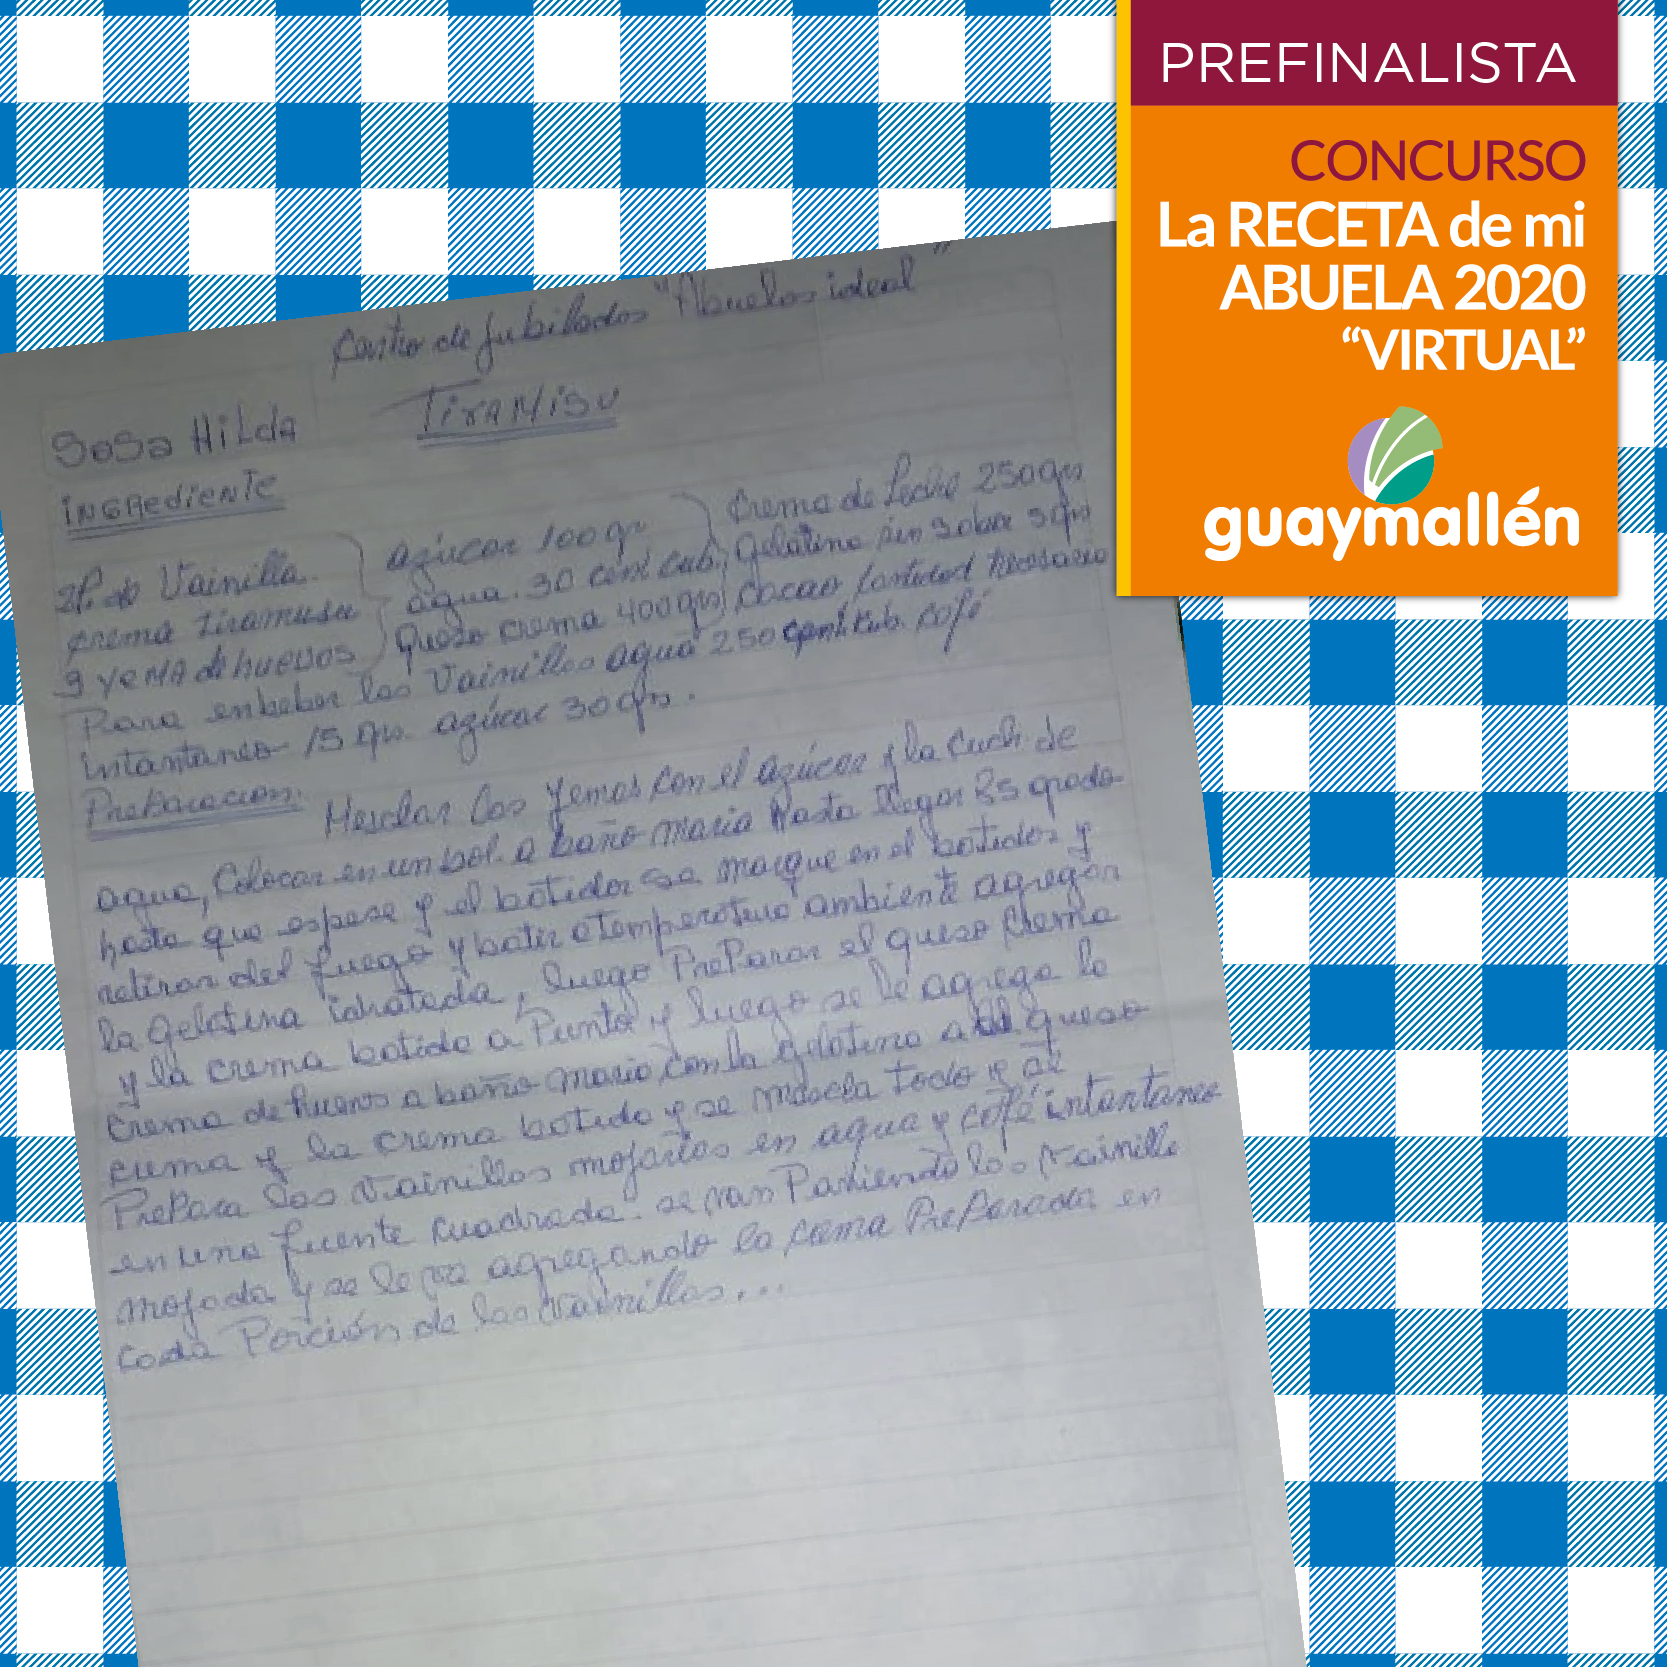 PREFINALISTA
CONCURSO
La RECETA de mi
ABUELA 2020
“VIRTUAL”
guaymallén
Centro de Jubilados "Abuelos ideal"
Tiramisu
Sosa Hilda
ingrediente
2P. de Vainilla. azúcar 100 gr crema de Leche 250grs
crema tiramusu agua. 30 cent cub. gelatina sin sobre
9 yema de huevos queso crema 400grs cacao cantidad necesario
Para enbeber las Vainillas agua 250 cent. cub. café
intantaneo 15 grs. azúcar 30 grs.
Preparacion: Mesclar las yemas con el azúcar y la cuch. de
agua, Colocar en un bol. a baño maria hasta llegar 85 grados
hasta que espese y el batidor se marque en el batidos y
retirar del fuego y batir a temperatura ambiente agregar
la gelatina idratada, luego PrePara el queso crema
y la crema batida a Punto y luego se le agrega la
crema de huevos a baño maria, con la gelatina a el queso
crema y la crema batida y se mescla todo y se
PrePara las vainillas mojarlas en agua y café intantaneo
en una fuente cuadrada. se van Partiendo las vainilla
mojada y se le va agregando la crema PreParada en
cada Porción de las vainillas...